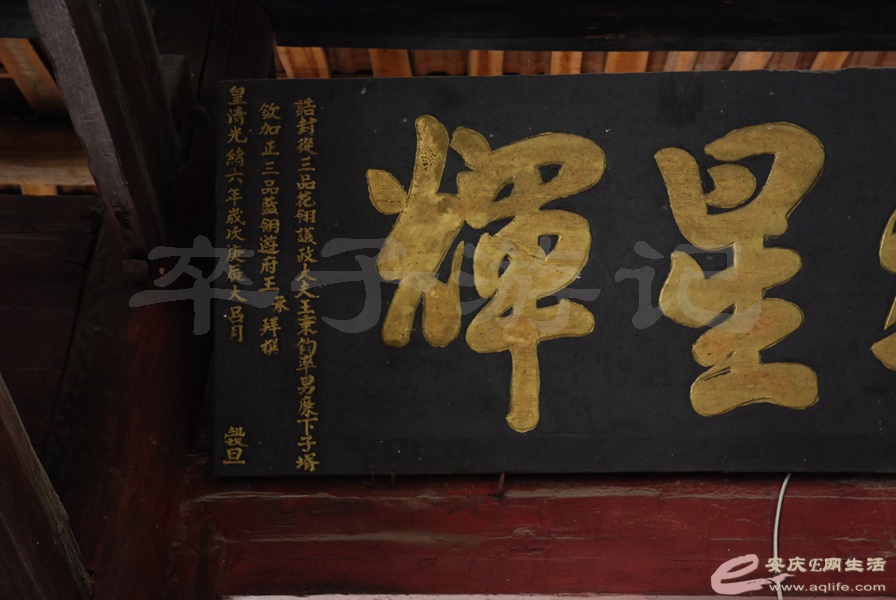 星輝
誥封從三品花翎議政大夫王秉鈞率男廉下子壻
欽加正三品藍翎遊府王承拜撰
皇清光緒六年歲次庚辰大呂月
穀旦
卒子游记
安庆E网生活
www.aqlife.com